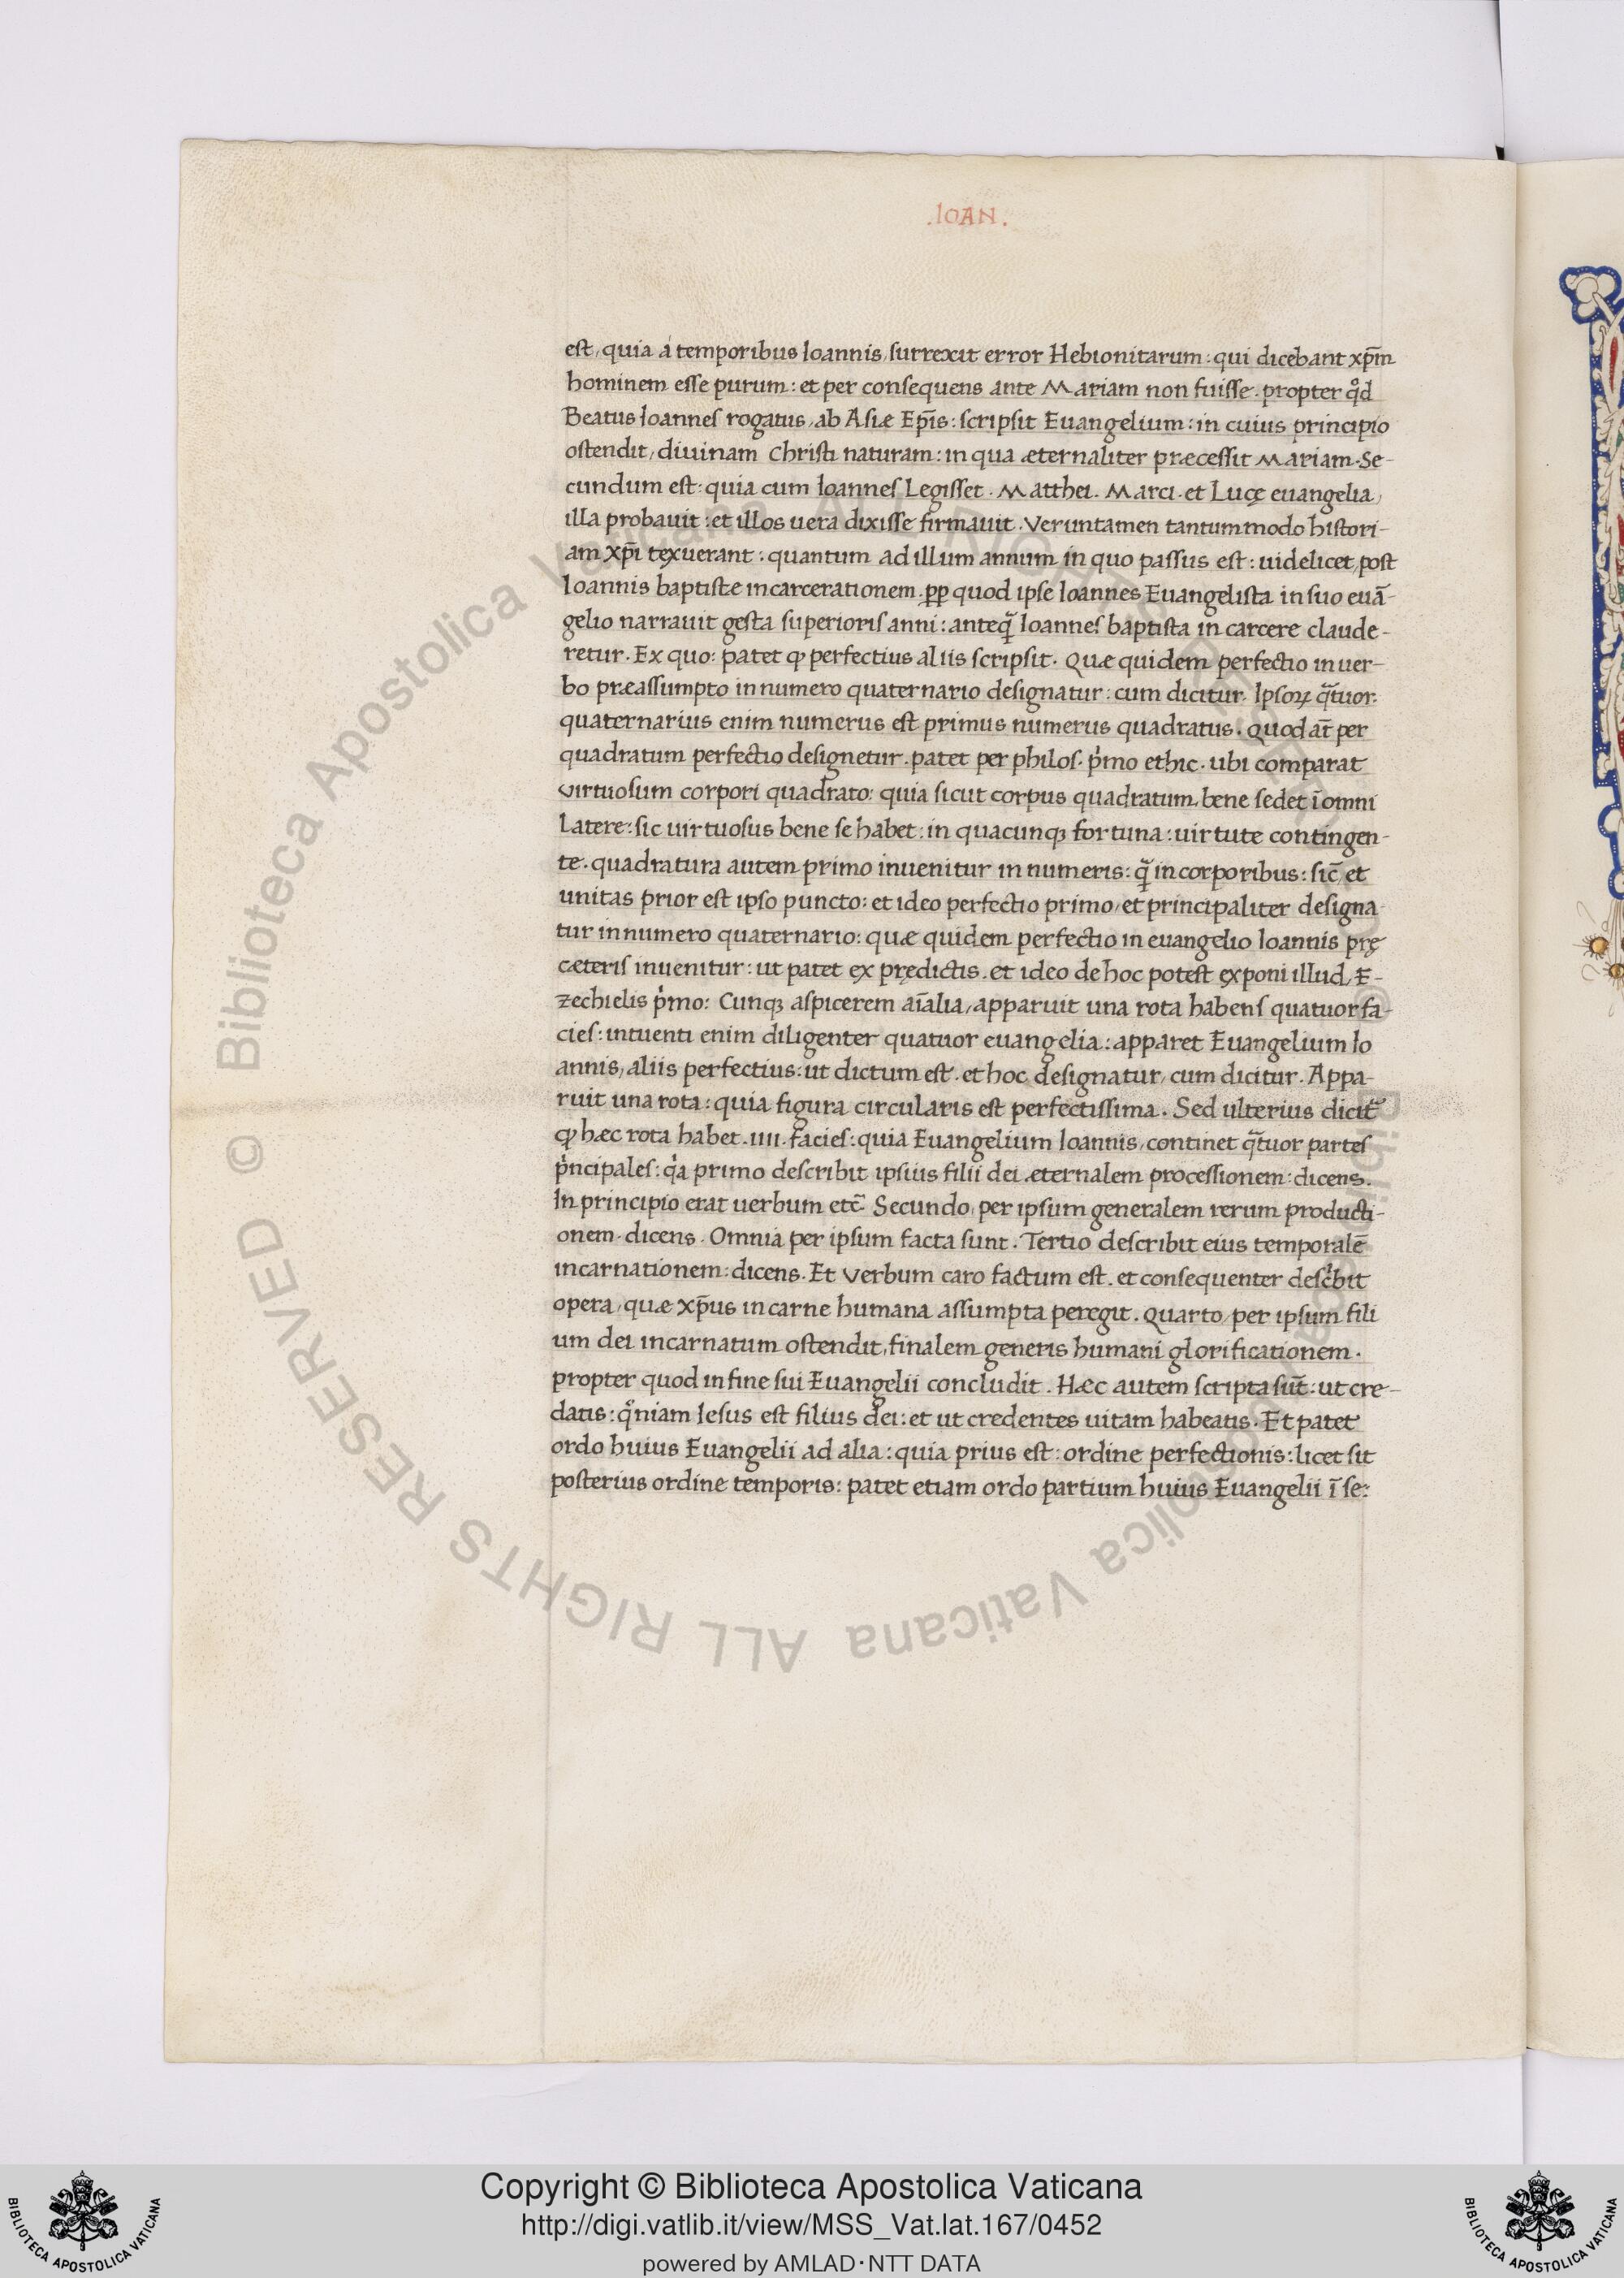 .IOAN.
est, quia a temporibus Ioannis, surrexit error Hebionitarum: qui dicebant xp̄m
hominem esse purum: et per consequens ante Mariam non fuisse. propter qͦd
Beatus Ioannes rogatus, ab Asiæ Ep̄is: scripsit Euangelium: in cuius principio
ostendit, diuinam Christi naturam: in qua æternaliter præcessit Mariam. Se-
cundum est: quia cum Ioannes Legisset. Matthei. Marci. et Lucę euangelia,
illa probauit: et illos uera dixisse firmauit. Veruntamen tantummodo histori-
am xp̄i texuerant: quantum ad illum annum in quo passus est: uidelicet, post
Ioannis baptistæ incarcerationem. ꝓꝑ quod ipse Ioannes Euangelista in suo euā-
gelio narrauit gesta superioris anni: anteq̄ Ioannes baptista in carcere claude-
retur. Ex quo: patet ꝙ perfectius aliis scripsit. Quæ quidem perfectio in uer-
bo præassumpto in numero quaternario designatur: cum dicitur. Ipsoꝝ q̄tuor:
quaternarius enim numerus est primus numerus quadratus. Quod at̄ per
quadratum perfectio designetur. patet per philos. pͥmo ethic. ubi comparat
virtuosum corpori quadrato: quia sicut corpus quadratum, bene sedet ī omni
Latere: sic uirtuosus bene se habet: in quacunqꝫ fortuna: uirtute contingen-
te. quadratura autem primo inuenitur in numeris: q̄ in corporibus: sic̄ et
unitas prior est ipso puncto: et ideo perfectio primo, et principaliter designa
tur in numero quaternario: quæ quidem perfectio in euangelio Ioannis prę
cæteris inuenitur: ut patet ex prędictis. et ideo de hoc potest exponi illud, E-
zechielis pͥmo: Cunqꝫ aspicerem aīalia, apparuit una rota habens quatuor fa-
cies: intuenti enim diligenter quatuor euangelia: apparet Euangelium Io
annis, aliis perfectius: ut dictum est. et hoc designatur, cum dicitur. Appa-
ruit una rota: quia figura circularis est perfectissima. Sed ulterius dicit̄
ꝙ hæc rota habet .IIII. facies: quia Euangelium Ioannis, continet q̄tuor partes
pͥncipales: qͥa primo describit ipsius filii dei æternalem processionem: dicens.
In principio erat uerbum etc̄. Secundo, per ipsum generalem rerum producti-
onem. dicens. Omnia per ipsum facta sunt. Tertio describit eius temporalē
incarnationem: dicens. Et verbum caro factum est. et consequenter descͥbit
opera, quæ xp̄us in carne humana assumpta peregit. Quarto, per ipsum fili
um dei incarnatum ostendit, finalem generis humani glorificationem.
propter quod in fine sui Euangelii concludit. Hæc autem scripta sūt: ut cre-
datis: qͦniam Iesus est filius dei: et ut credentes uitam habeatis. Et patet
ordo huius Euangelii ad alia: quia prius est: ordine perfectionis: licet sit
posterius ordine temporis: patet etiam ordo partium huius Euangelii ī se:
© Biblioteca Apostolica Vaticana ALL RIGHTS RESERVED
© Biblioteca Apostolica Vaticana ALL RIGHTS RESERVED
Copyright © Biblioteca Apostolica Vaticana
http://digi.vatlib.it/view/MSS_Vat.lat.167/0452
powered by AMLAD·NTT DATA
BIBLIOTECA APOSTOLICA VATICANA
BIBLIOTECA APOSTOLICA VATICANA